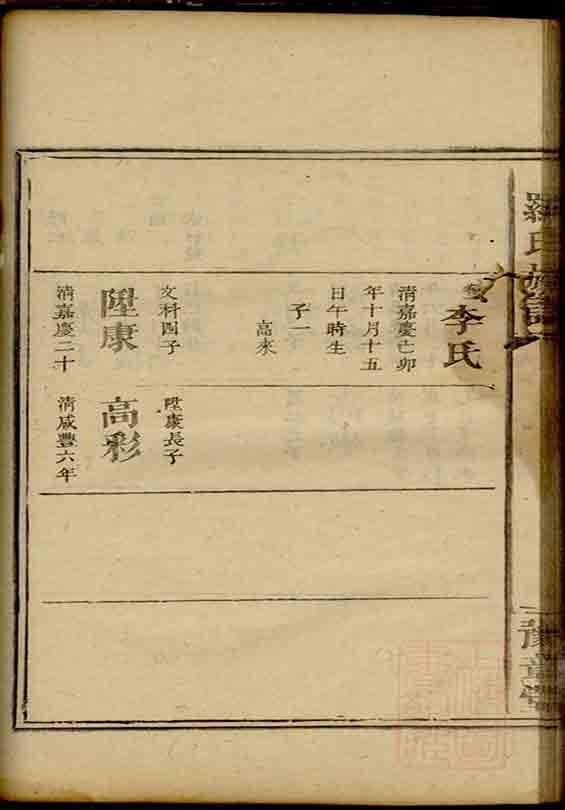 羅氏族譜
豫章堂
李氏
清嘉慶己卯
年十月十五
日午時生
子一
高來
文科四子
陞康
清嘉慶二十
陞康長子
高彩
清咸豐六年